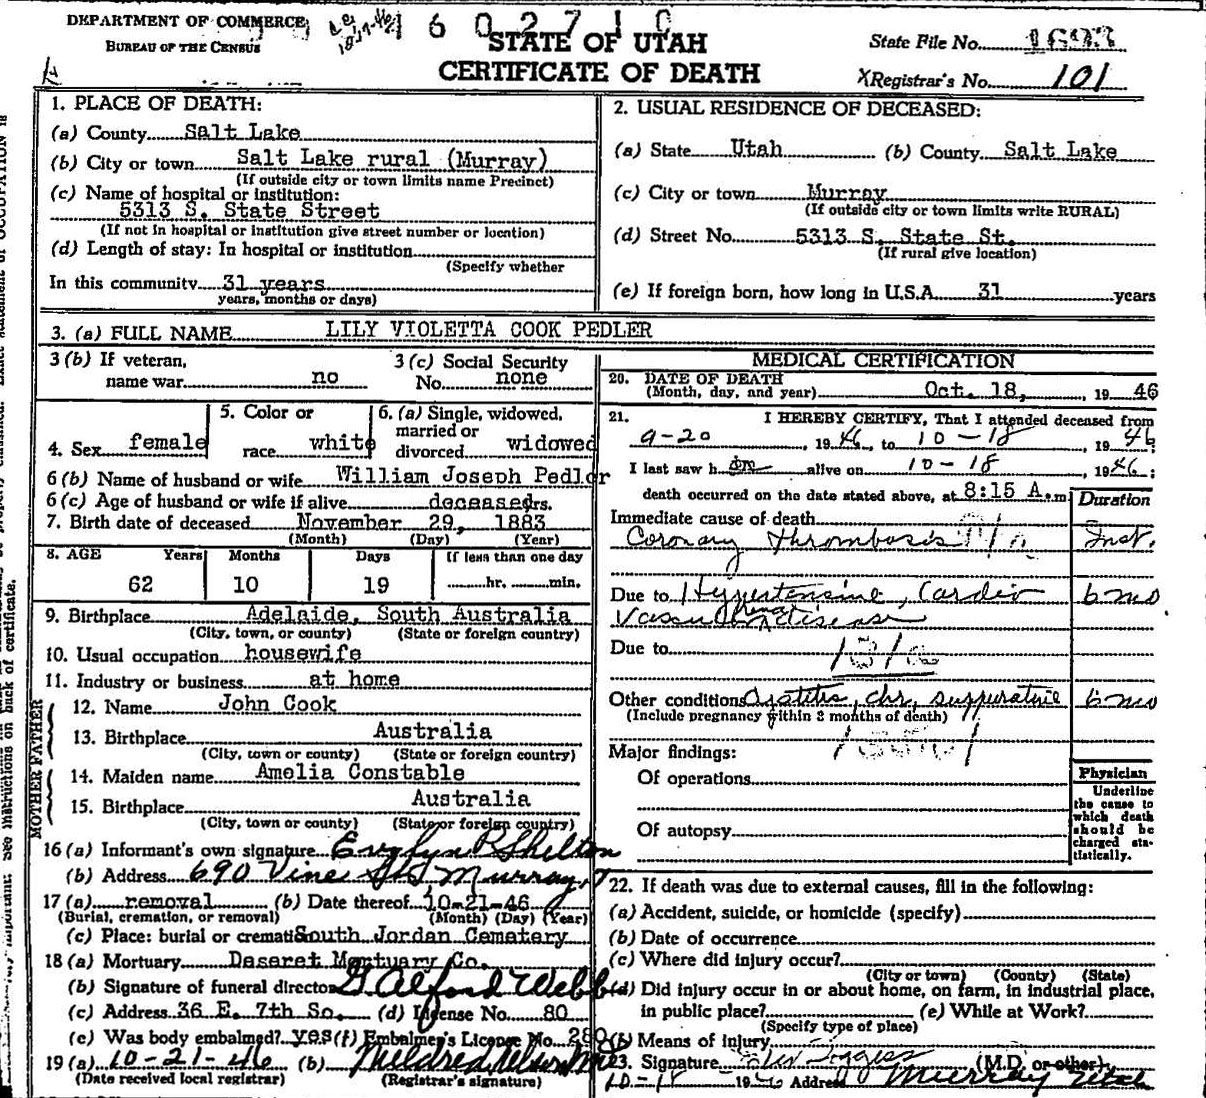 DEPARTMENT OF COMMERCE
BUREAU OF THE CENSUS
6 0 2 7 1 0
STATE OF UTAH
CERTIFICATE OF DEATH
State File No. 1693
XRegistrar's No. 101
1. PLACE OF DEATH:
(a) County Salt Lake
(b) City or town Salt Lake rural (Murray)
(If outside city or town limits name Precinct)
(c) Name of hospital or institution:
5313 S. State Street
(If not in hospital or institution give street number or location)
(d) Length of stay: In hospital or institution
(Specify whether
In this community 31 years
years, months or days)
2. USUAL RESIDENCE OF DECEASED:
(a) State Utah (b) County Salt Lake
(c) City or town Murray
(If outside city or town limits write RURAL)
(d) Street No. 5313 S. State St.
(If rural give location)
(e) If foreign born, how long in U.S.A. 31 years
3. (a) FULL NAME LILY VIOLETTA COOK PEDLER
3 (b) If veteran,
name war no
3 (c) Social Security
No. none
4. Sex female
5. Color or
race white
6. (a) Single, widowed,
married or
divorced widowed
6 (b) Name of husband or wife William Joseph Pedler
6 (c) Age of husband or wife if alive deceased yrs.
7. Birth date of deceased November 29, 1883
(Month) (Day) (Year)
8. AGE Years Months Days If less than one day
62 10 19 hr. min.
9. Birthplace Adelaide, South Australia
(City, town, or county) (State or foreign country)
10. Usual occupation housewife
11. Industry or business at home
FATHER
12. Name John Cook
13. Birthplace Australia
(City, town or county) (State or foreign country)
MOTHER
14. Maiden name Amelia Constable
15. Birthplace Australia
(City, town or county) (State or foreign country)
16 (a) Informant's own signature Evelyn P Shelton
(b) Address 690 Vine St Murray, U
17 (a) removal (b) Date thereof 10-21-46
(Burial, cremation, or removal) (Month) (Day) (Year)
(c) Place: burial or cremation South Jordan Cemetery
18 (a) Mortuary Deseret Mortuary Co.
(b) Signature of funeral director G Alford Webb
(c) Address 36 E. 7th So. (d) License No. 80
(e) Was body embalmed? yes (f) Embalmer's License No. 280
19 (a) 10-21-46 (b) Mildred Nelson
(Date received local registrar) (Registrar's signature)
MEDICAL CERTIFICATION
20. DATE OF DEATH
(Month, day, and year) Oct. 18, 1946
21. I HEREBY CERTIFY, That I attended deceased from
9-20, 1946, to 10-18 1946
I last saw h er alive on 10-18 1946;
death occurred on the date stated above, at 8:15 A.m.
Duration
Immediate cause of death
Coronary thrombosis Inst.
Due to Hypertensive, Cardio 6 mo
Vascular renal disease
Due to
131a
Other conditions Cystitis, chr, suppurative 6 mo
(Include pregnancy within 3 months of death)
Major findings:
Of operations
Of autopsy
Physician
Underline
the cause to
which death
should be
charged sta-
tistically.
22. If death was due to external causes, fill in the following:
(a) Accident, suicide, or homicide (specify)
(b) Date of occurrence
(c) Where did injury occur?
(City or town) (County) (State)
(d) Did injury occur in or about home, on farm, in industrial place,
in public place? (e) While at Work?
(Specify type of place)
(f) Means of Injury
23. Signature (M.D. or other)
10-18 1946 Address Murray Utah
See instructions on back of certificate.